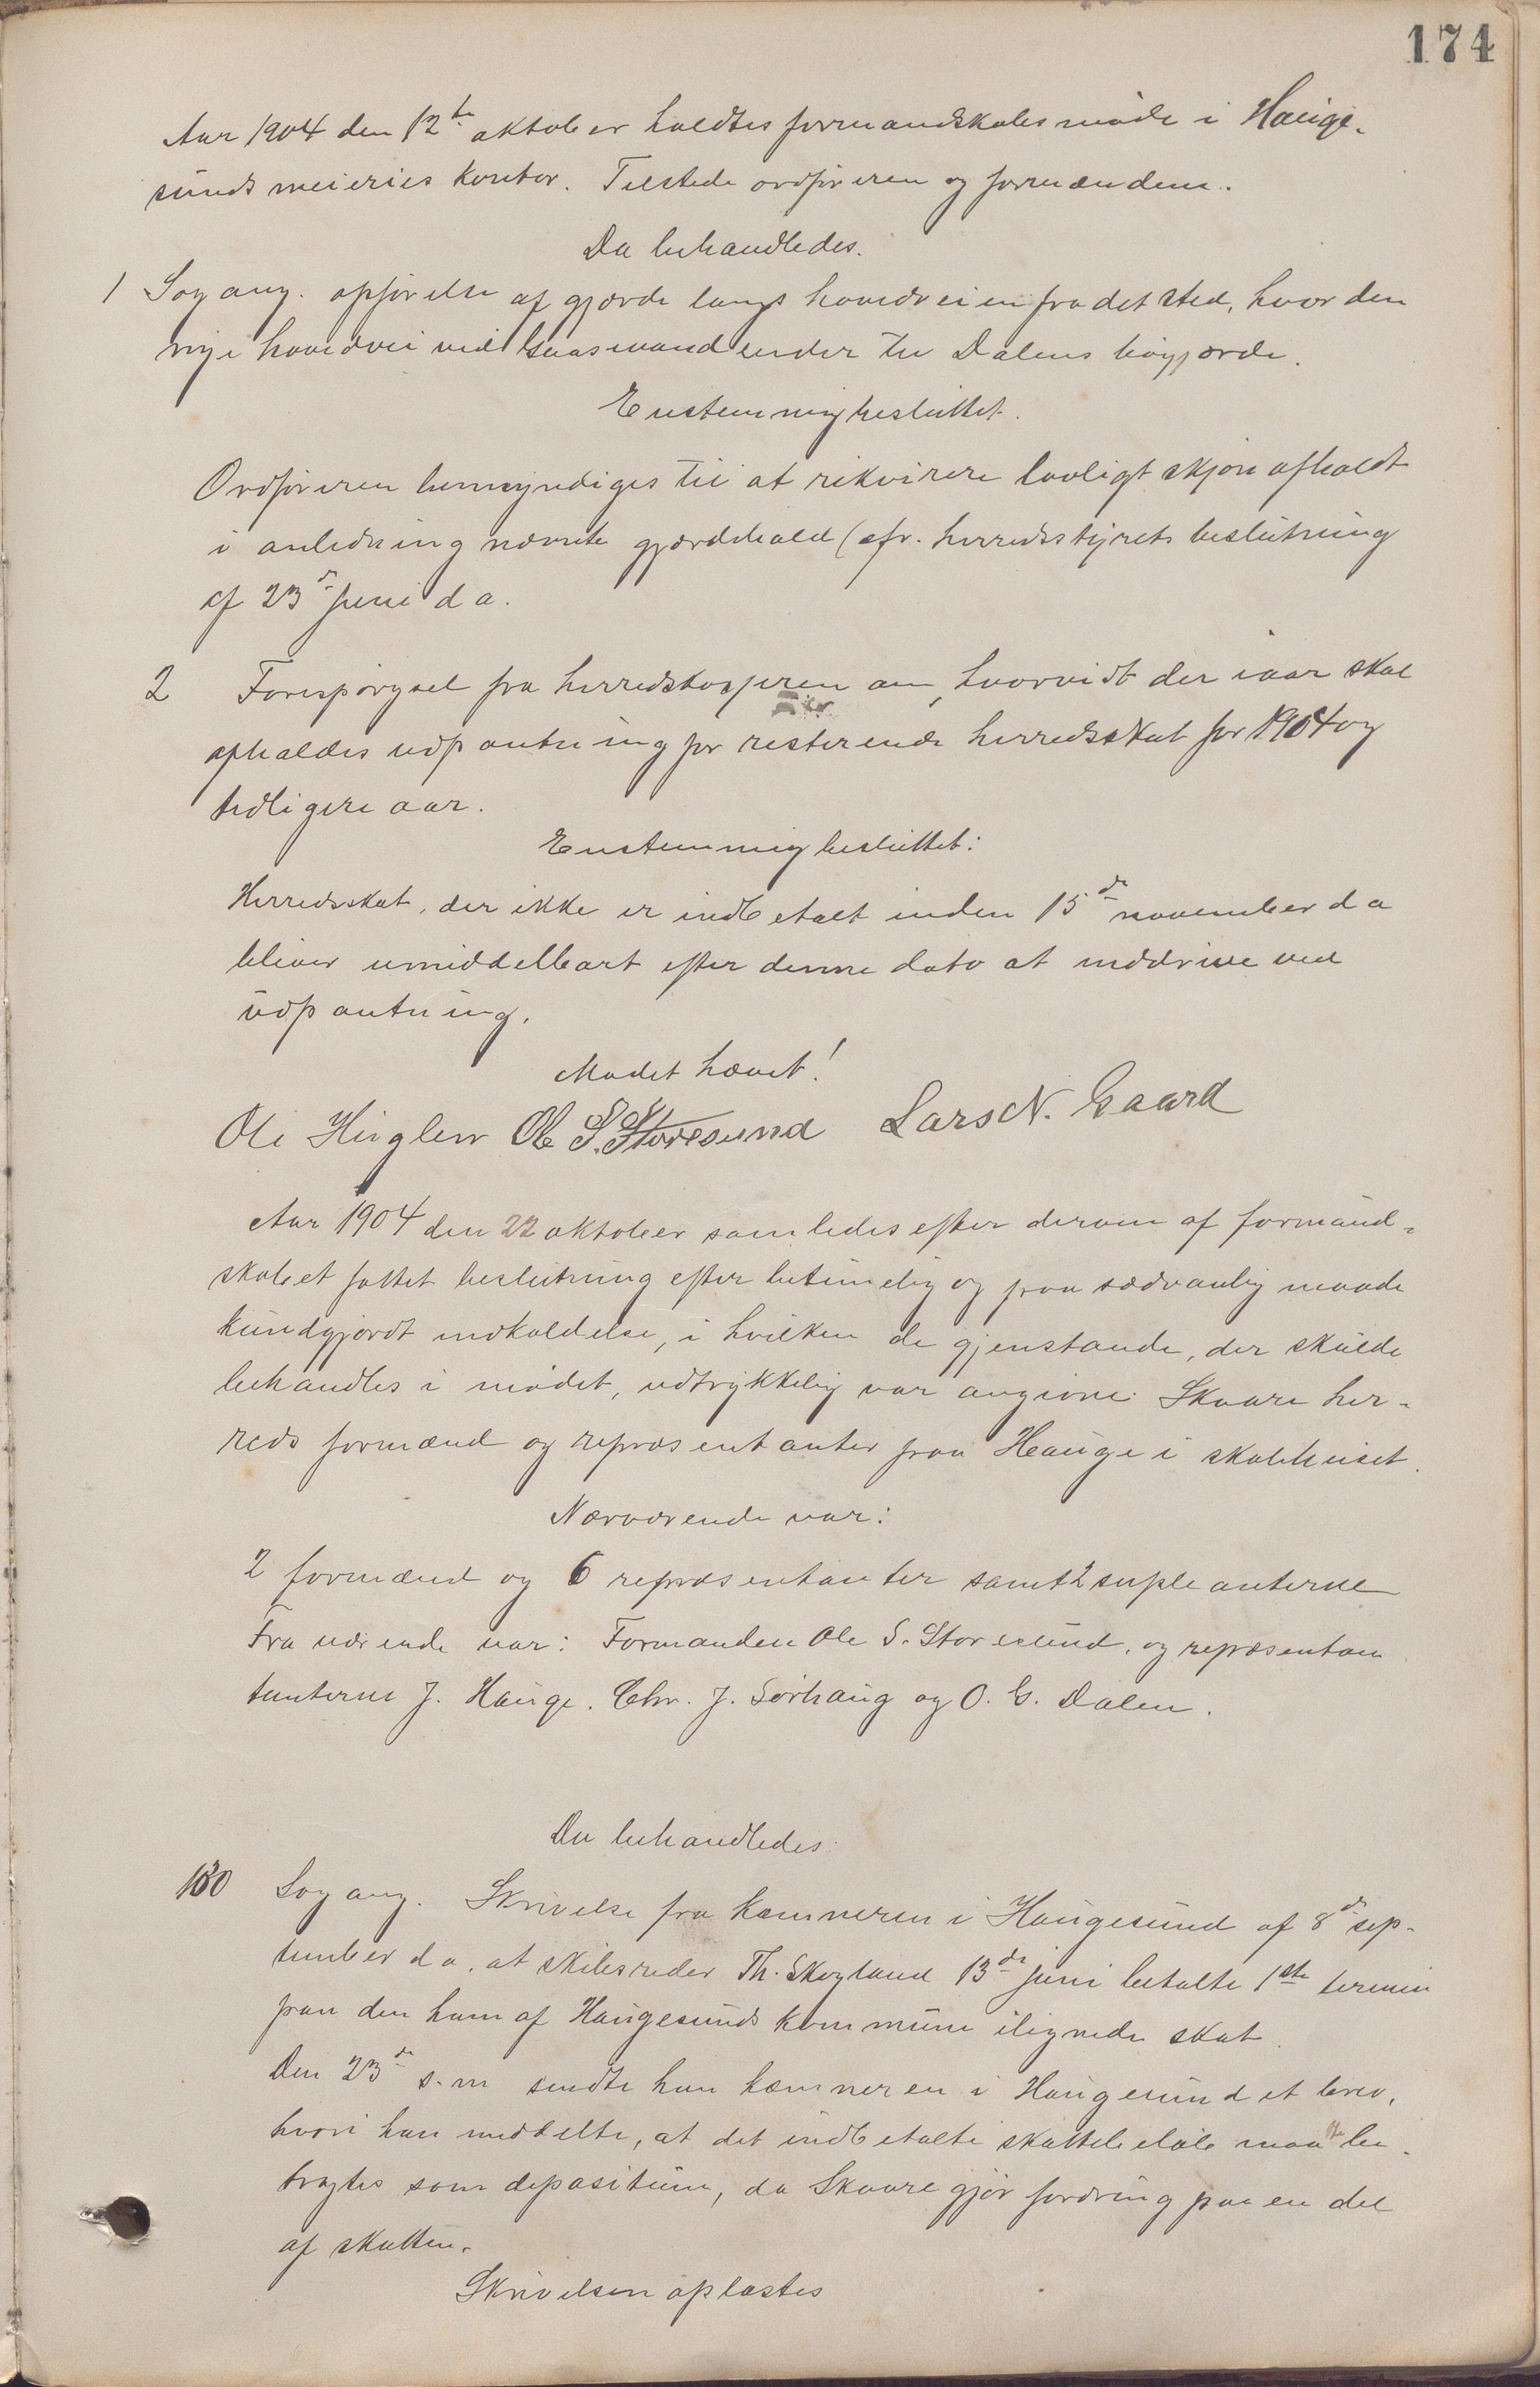 174
Aar 1904 den 12te oktober holdtes formandskabsmøde i Hauge-
sunds meieries kontor. Tilstede ordføreren og formændene.
Da behandledes.
1 Sag ang. opførelse af gjærde langs hovedveien fra det sted, hvor den
nye hovedvei ved Gaasvand ender til Dalens bøgjærde.
Enstemmig besluttet.
Ordføreren bemyndiges til at rikvirere lovligt skjøn afholdt
i anledning nævnte gjærdehold (cfr. herredsstyrets beslutning
af 23de juni d a.
2 Forespørgsel fra herredskasseren om, hvorvidt der iaar skal
afholdes udpantning for resterende herredsskat for 1904 og
tidligere aar.
Enstemmig besluttet:
Herredsskat, der ikke er indbetalt inden 15de november d a
bliver umiddelbart efter denne dato at inddrive ved
udpantning.
Mødet hævet!
Ole Hinglen Ole S. Storesund Lars N. Gaard
Aar 1904 den 22 oktober samledes efter derom af formand-
skabet fattet beslutning efter betimelig og paa sædvanlig maade
kundgjordt indkaldelse, i hvilken de gjenstande, der skulde
behandles i mødet, udtrykkelig var angivne Skaare her-
reds formænd og repræsentanter paa Hauge i skolehuset.
Nærværende var:
2 formænd og 6 repræsentanter samt 2 supleanterne
Fraværende var: Formanden Ole S. Storesund, og repræsentan
tanterne J. Hauge. Chr. J. Sørhaug og O. G. Dalen.
Da behandledes:
130 Sag ang. Skrivelse fra kæmneren i Haugesund af 8de sep-
tember d a. at skibsreder Th. Skogland 13de juni betalte 1ste termin
paa den ham af Haugesunds kommune ilignede skat.
Den 23de s. m sendte han kæmneren i Haugesund et brev,
hvori han meddelte, at det indbetalte skattebeløb maatte be-
tragtes som depositum, da Skaare gjør fordring paa en del
af skatten.
Skrivelsen oplæstes